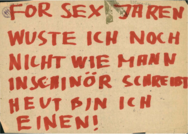 FOR SEX JAHREN
WUSTE ICH NOCH
NICHT WIE MANN
INSCHINÖR SCHREIBT
HEUT BIN ICH
EINEN!